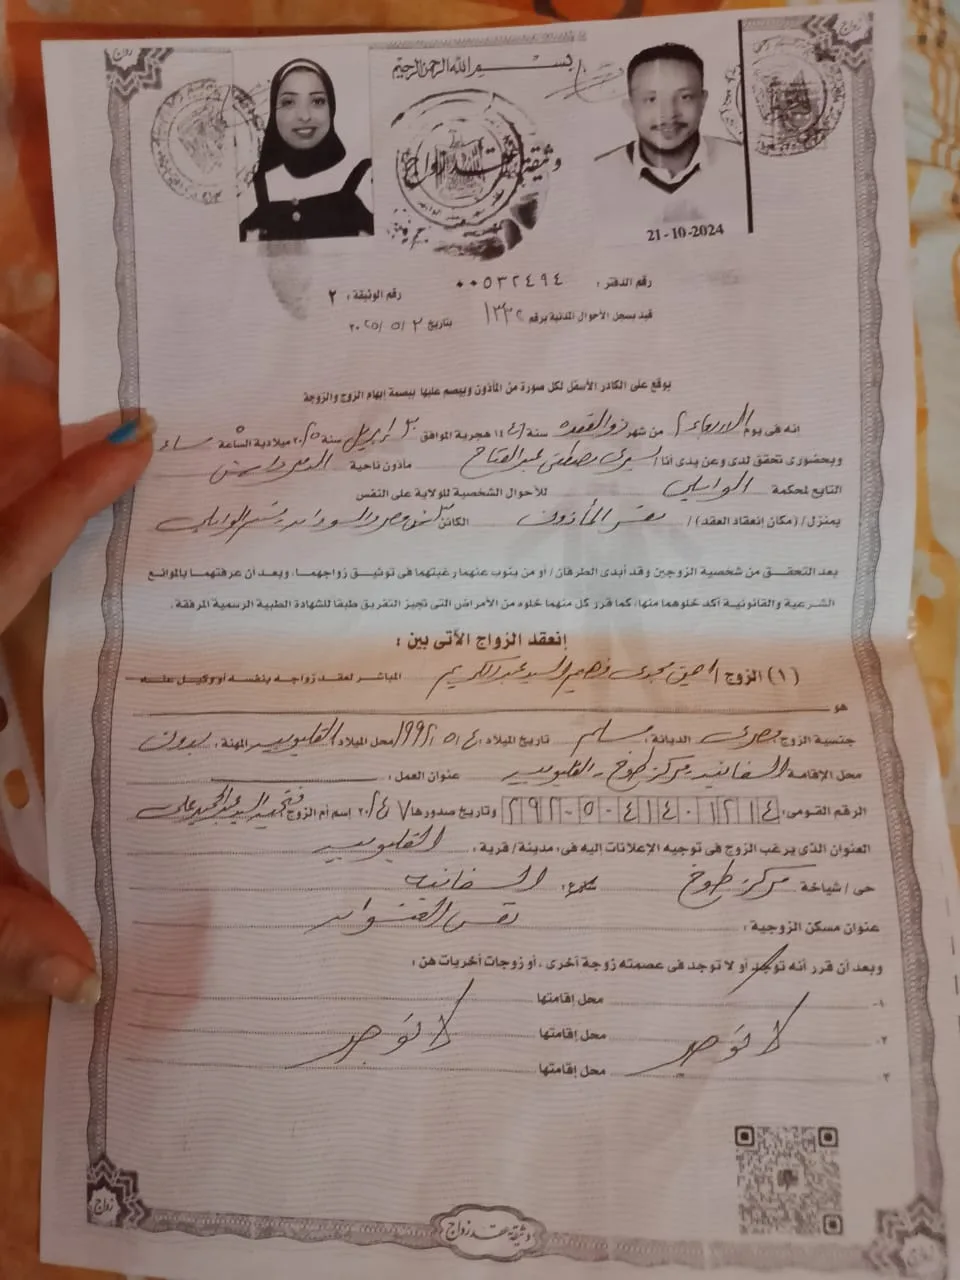 زواج
زواج
بسم الله الرحمن الرحيم
وثيقة عقد زواج
21-10-2024
رقم الدفتر : ٠٠٥٣٢٤٩٤ رقم الوثيقة : ٢
قيد بسجل الأحوال المدنية برقم بتاريخ ٢ / ٥ / ٢٠٢٥
يوقع على الكادر الأسفل لكل صورة من المأذون ويبصم عليها ببصمة إبهام الزوج والزوجة
انه فى يوم الاربعاء ٢ من شهر ذو القعدة سنة ١٤٤٦ هجرية الموافق ٣٠ ابريل سنة ٢٠٢٥ ميلادية الساعة مساء
وبحضورى تحقق لدى وعن يدى أنا / يسرى مصطفى عبد الفتاح مأذون ناحية الدمرداش
التابع لمحكمة الوايلي للأحوال الشخصية للولاية على النفس
بمنزل / (مكان إنعقاد العقد) / مقر المأذون الكائن مصر والسودان قسم الوايلي
بعد التحقق من شخصية الزوجين وقد أبدى الطرفان / أو من ينوب عنهما رغبتهما فى توثيق زواجهما ، وبعد أن عرفتهما بالموانع
الشرعية والقانونية أكد خلوهما منها ، كما قرر كل منهما خلوه من الأمراض التى تجيز التفريق طبقا للشهادة الطبية الرسمية المرفقة .
إنعقد الزواج الأتى بين :
(١) الزوج / مجدى فهيم السيد عبد الكريم المباشر لعقد زواجه بنفسه أو وكيل عنه
هو
جنسية الزوج : مصرى الديانة : مسلم تاريخ الميلاد : ٤ / ٥ / ١٩٩٢ محل الميلاد : القليوبية المهنة : بدون
محل الإقامة : السفانيه مركز طوخ - القليوبية عنوان العمل :
الرقم القومى : ٢٩٢٠٥٠٤١٤٠١٢١٤ وتاريخ صدورها إسم أم الزوج : فتحية السيد عبد الحميد على
العنوان الذى يرغب الزوج فى توجيه الإعلانات إليه فى : مدينة / قرية : القليوبية
حى / شياخة مركز طوخ شارع : السفانيه
عنوان مسكن الزوجية : نفس العنوان
وبعد أن قرر أنه توجد أو لا توجد فى عصمته زوجة أخرى ، أو زوجات أخريات هن :
١- محل إقامتها
٢- لا توجد محل إقامتها لا توجد
٣- محل إقامتها
زواج
وثيقة عقد زواج